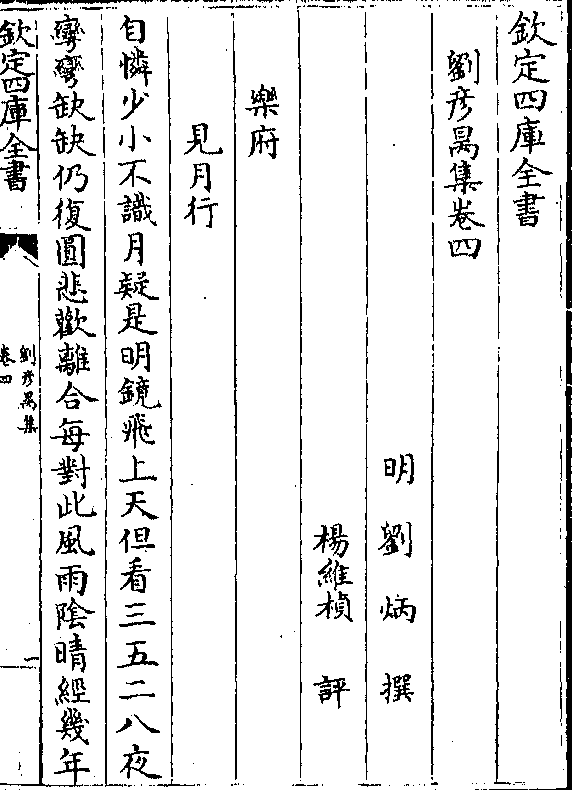 欽定四庫全書
劉彥昺集卷四
明劉炳撰
楊維楨評
樂府
見月行
自憐少小不識月疑是明鏡飛上天但看三五二八夜
彎彎缺缺仍復圓悲歡離合每對此風雨陰晴經幾年
欽定四庫全書
劉彥昺集
卷四
一